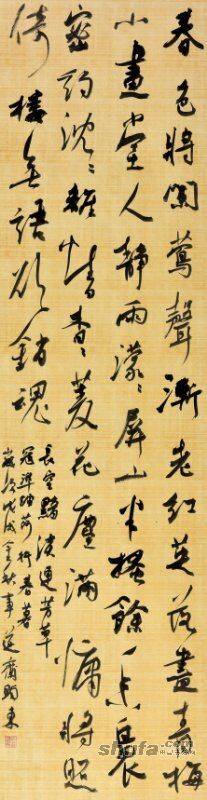 春色將闌鶯聲漸老紅英落盡青梅
小畫堂人靜雨濛濛屏山半掩餘香裊
密約沈沈離情杳杳菱花塵滿慵將照
倚樓無語欲銷魂
長空黯淡連芳草
寇準踏莎行春暮
歲次戊戌金秋